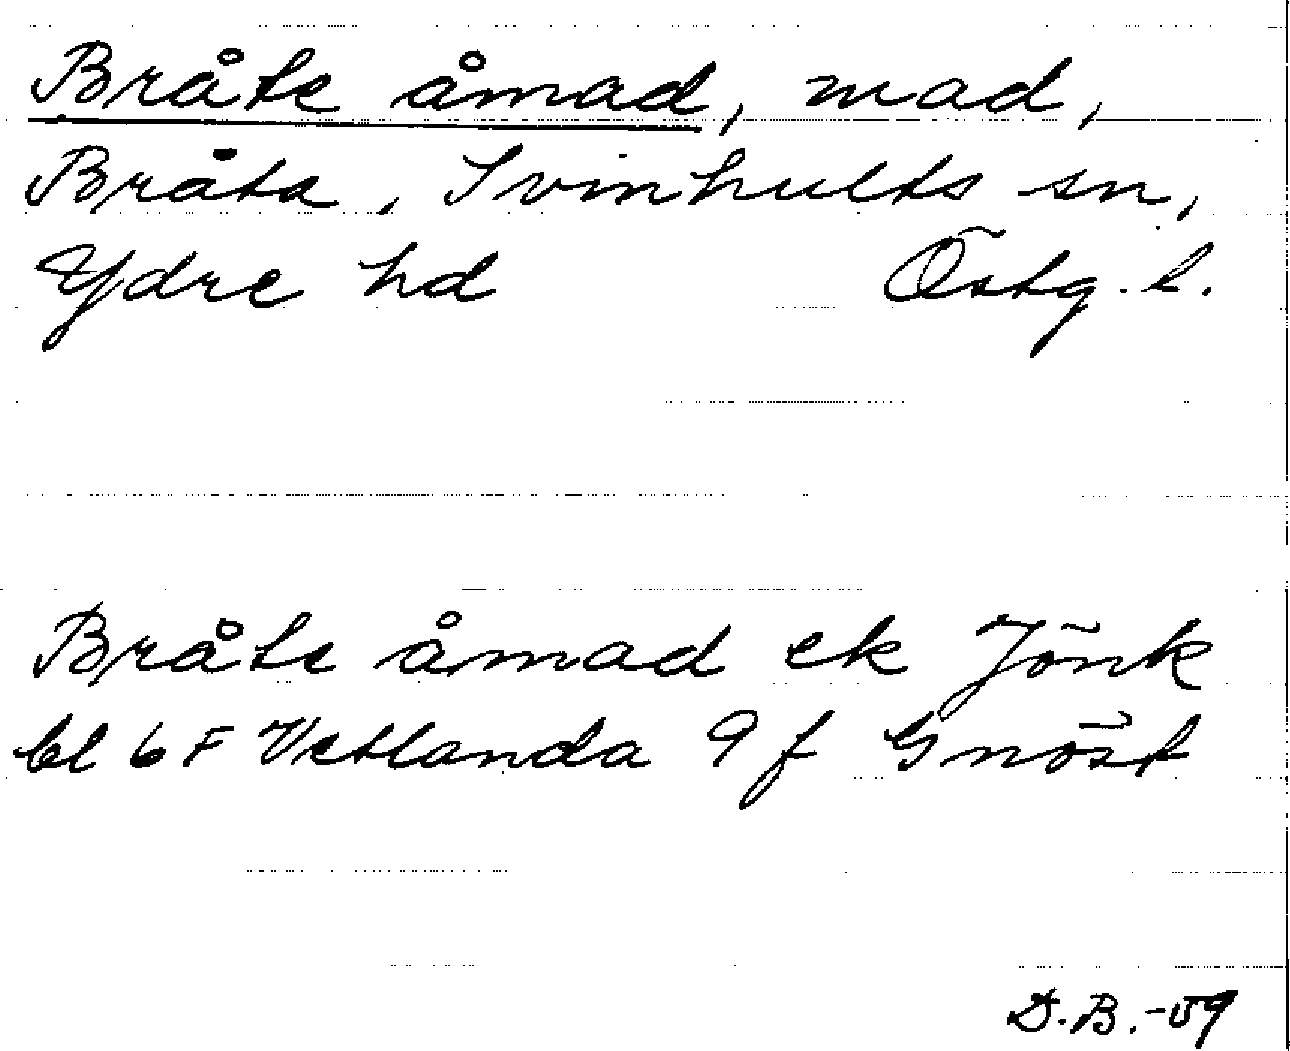 Bråte åmad, mad,
Bråta, Svinhults sn,
Ydre hd Östg. l.
Bråte åmad ek Jönk
bl 6 F Vetlanda 9 f Gnöst
D.B.-59